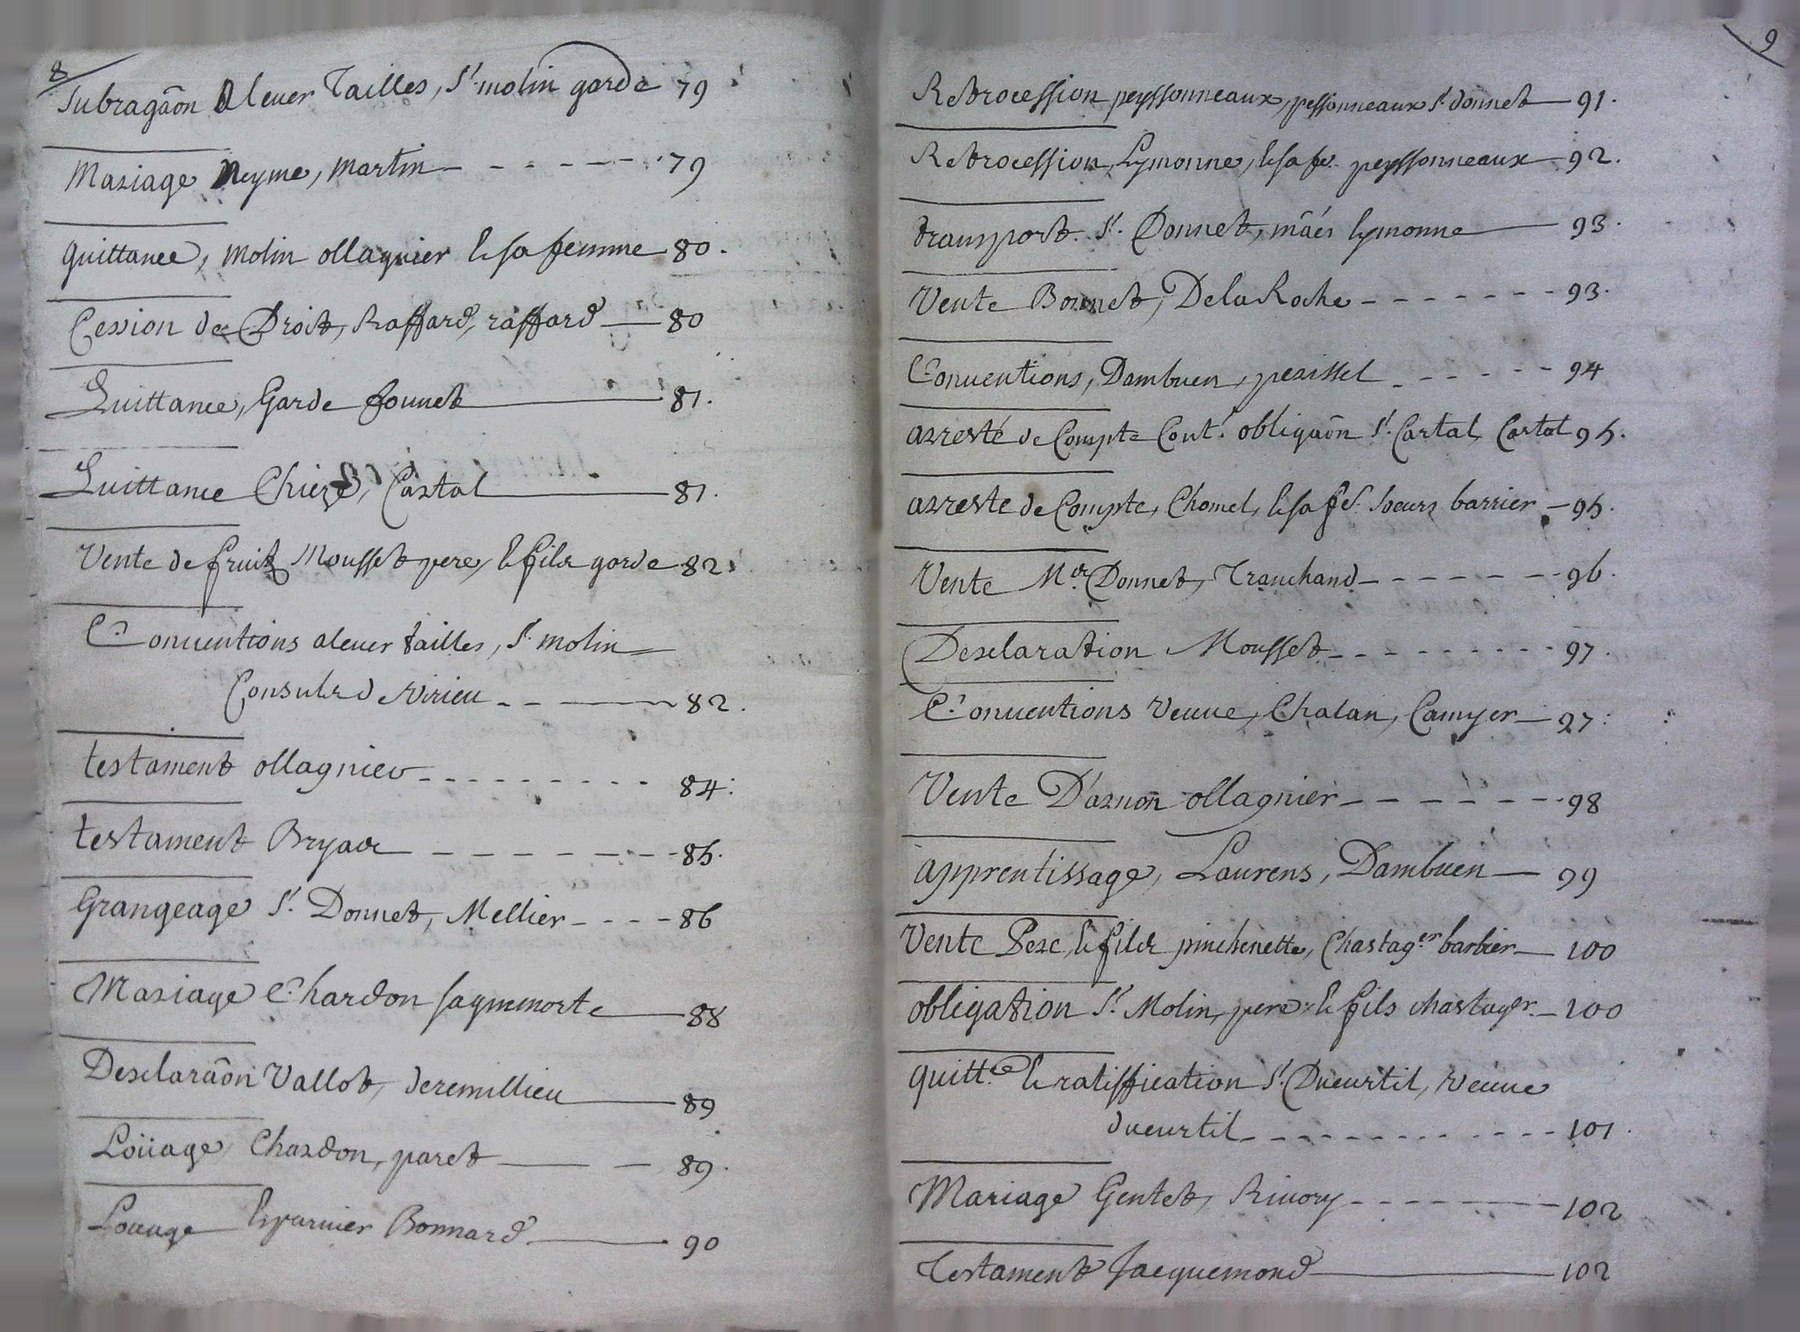 8
Subragãon A lever Tailles, Sr. molin garde 79
Mariage Neyme, martin 79
quittance, molin ollagnier & sa femme 80.
Cession de Droit, Raffard, raffard 80
Quittance, Garde fournet 81.
Quittance Chieze, Cartal 81.
Vente de fruit Mousset pere, & fils garde 82
Conventions a lever tailles, Sr. molin
Consuls de virieu 82.
testament ollagnier 84.
testament Bryas 85.
Grangeage Sr. Donnet, Mellier 86
Mariage Chardon saquemorte 88
Desclarãon Vallot, deremillieu 89
Loüage Chardon, paret 89.
Louage Esparnier Bonnard 90
9
Retrocession peyssonneaux, pessonneaux Sr. donnet 91.
Retrocession, Lymonne, & sa fe. peyssonneaux 92.
transport. Sr. Donnet, mãés lymonne 93.
Vente Bonnet, DelaRoche 93.
Conventions, Dambuen, perissel 94
arresté de Compte Cont. obligãon Sr. Cartal, Cartal 95.
arreste de Compte, Chomel, & sa fe. soeurs barrier 95.
Vente Mr. Donnet, Tranchand 96.
Desclaration Mousset 97.
Conventions veuve, Chalan, Camyer 97.
Vente D'arnon ollagnier 98
apprentissage, Laurens, Dambuen 99
Vente Pere, & fils pinchenette, Chastager barbier 100
obligation Sr. Molin, pere & fils chastager. 100
quitt.ce & ratiffication Sr. Ducurtil, veuve
ducurtil 101.
Mariage Gentet, Rivory 102
Testament Jacquemond 102